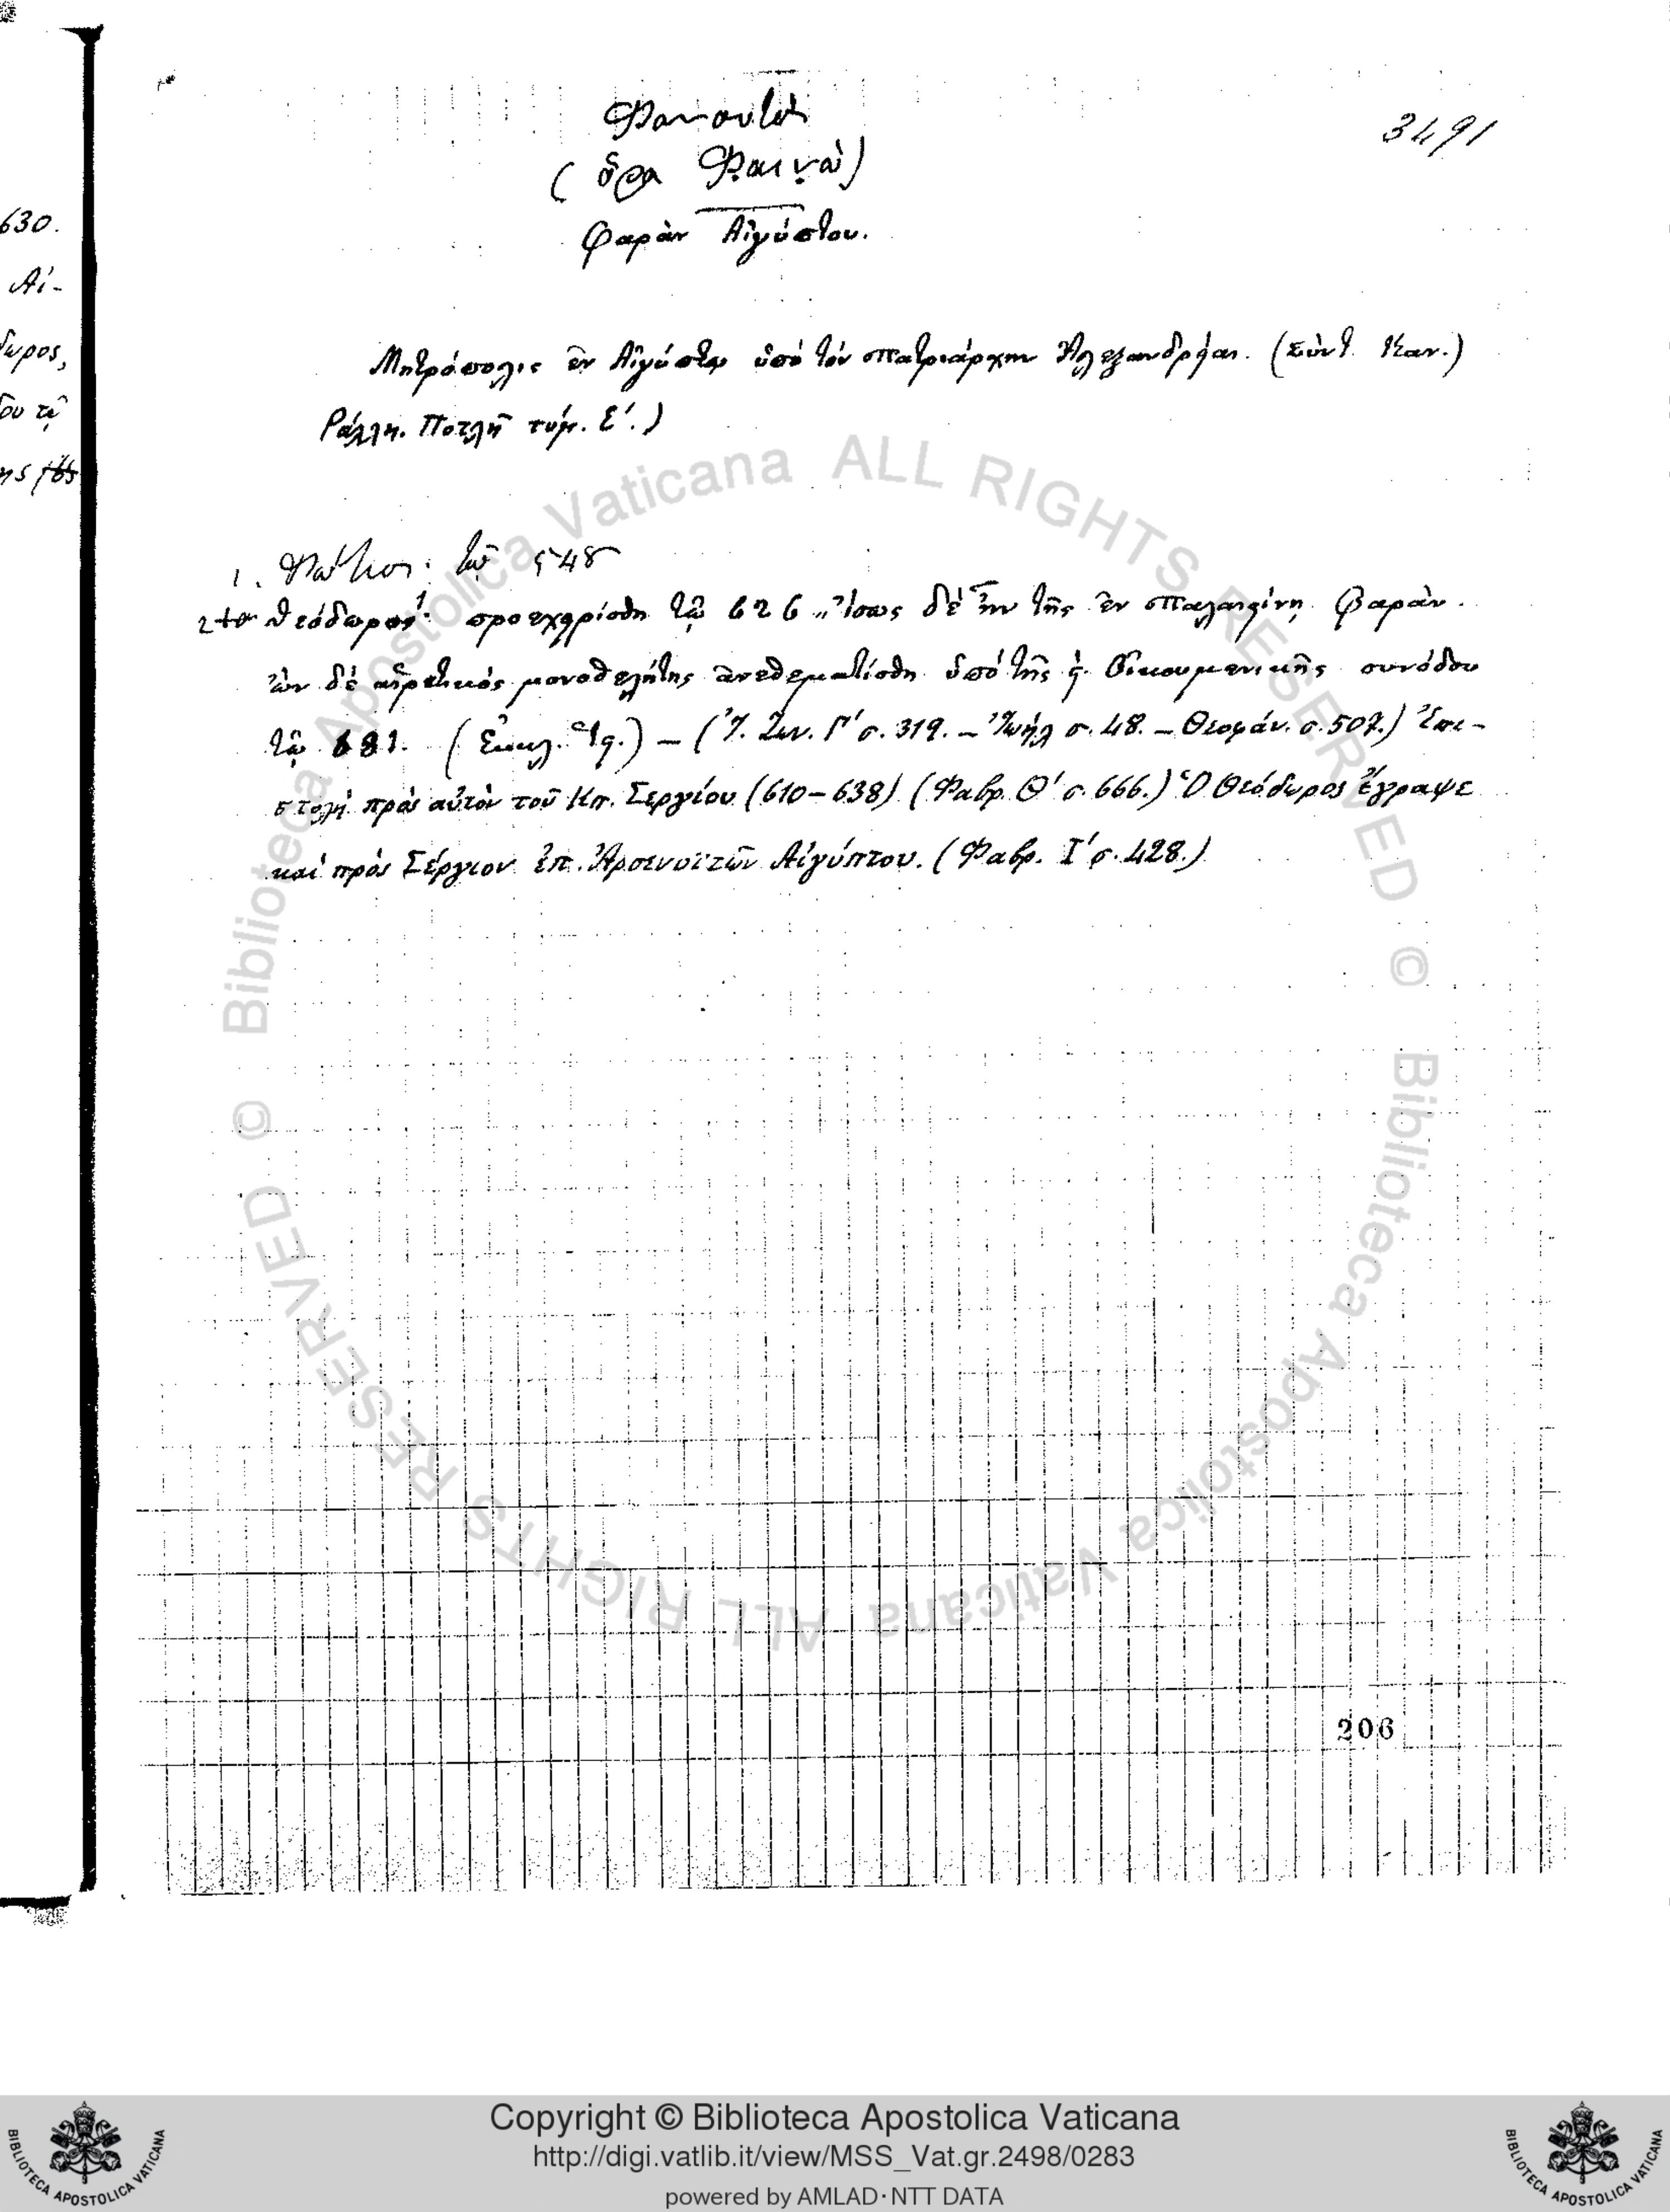 3491
(ὅρα Φαινὼ)
Φαρὰν Αἰγύπτου.
630.
Αἰ-
Μητρόπολις ἐν Αἰγύπτῳ ὑπὸ τὸν πατριάρχην Ἀλεξανδρείας. (Σύντ. Καν.)
Ράλλη. Ποτλῆ τόμ. Ε΄.)
1. Φώτιος. τῷ 548
2 Θεόδωρος 1. προεχειρίσθη τῷ 626 „ Ἴσως δὲ ἦν τῆς ἐν Παλαιστίνῃ Φαράν.
ὢν δὲ αἱρετικὸς μονοθελήτης ἀνεθεματίσθη ὑπὸ τῆς ϛ΄. Οἰκουμενικῆς συνόδου
τῷ 681. (Ἐκκλ. Ἱς.) – (Ἱ. Συν. Γ΄ σ. 319. – Ἰωὴλ σ. 48. – Θεοφάν. σ. 507.) Ἐπι-
στολὴ πρὸς αὐτὸν τοῦ Κπ. Σεργίου (610–638) (Φαβρ. Θ΄ σ. 666.) Ὁ Θεόδωρος ἔγραψε
καὶ πρὸς Σέργιον ἐπ. Ἀρσενοϊτῶν Αἰγύπτου. (Φαβρ. Ι΄ σ. 428.)
206
© Biblioteca Apostolica Vaticana ALL RIGHTS RESERVED
© Biblioteca Apostolica Vaticana ALL RIGHTS RESERVED
Copyright © Biblioteca Apostolica Vaticana
http://digi.vatlib.it/view/MSS_Vat.gr.2498/0283
powered by AMLAD·NTT DATA
BIBLIOTECA APOSTOLICA VATICANA
BIBLIOTECA APOSTOLICA VATICANA